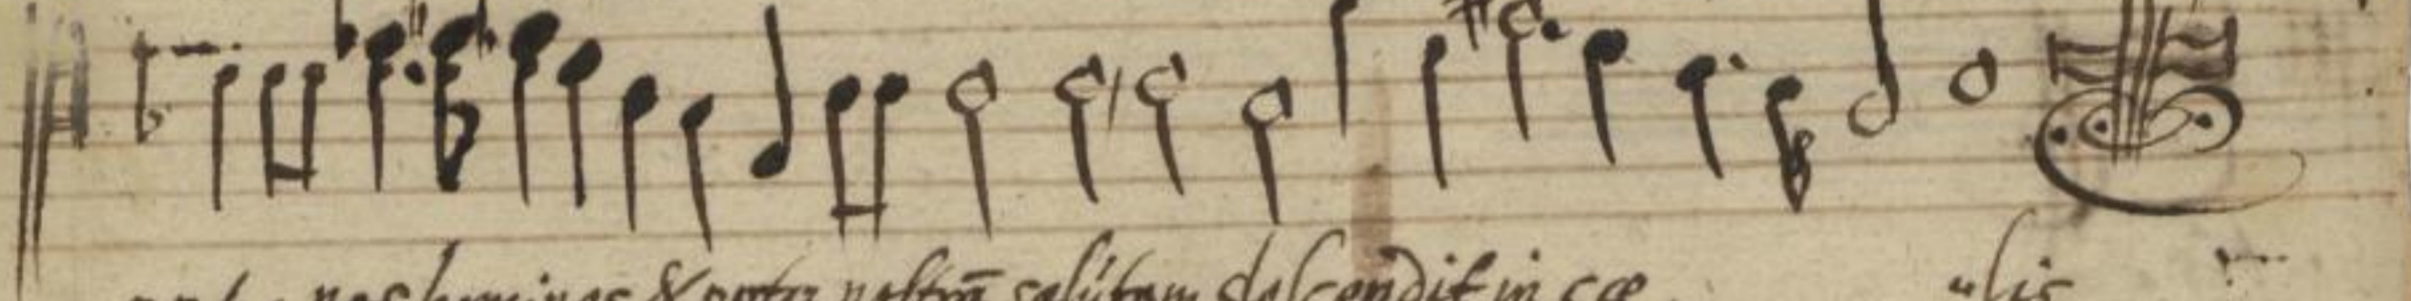 nos homines & propter nostrā salutem descendit in cœ ulis